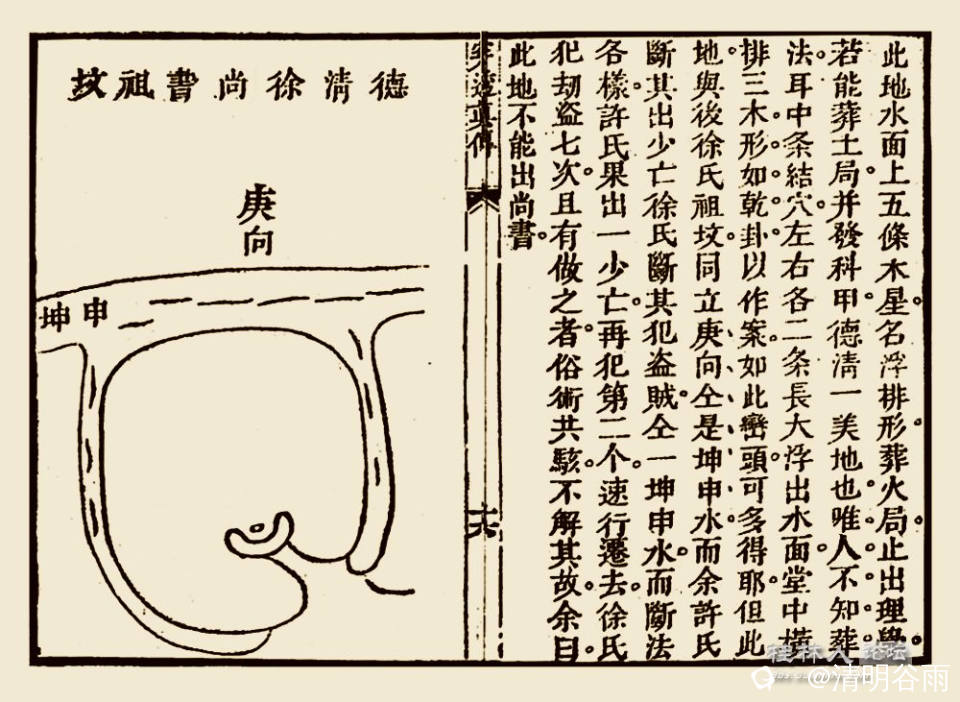 此地水面上五條木星名浮排形葬火局止出理學
若能葬土局并發科甲德清一美地也唯人不知葬
法耳中条結穴左右各二条長大浮出水面堂中橫
排三木形如乾卦以作案如此巒頭可多得耶但此
地與後徐氏祖坟同立庚向仝是坤申水而余許氏
斷其出少亡徐氏斷其犯盜賊仝一坤申水而斷法
各樣許氏果出一少亡再犯第二个速行遷去徐氏
犯劫盜七次且有做之者俗術共駭不解其故余曰
此地不能出尚書
真傳
十六
德清徐尚書祖坟
庚向
申
坤
桂林人论坛
@清明谷雨